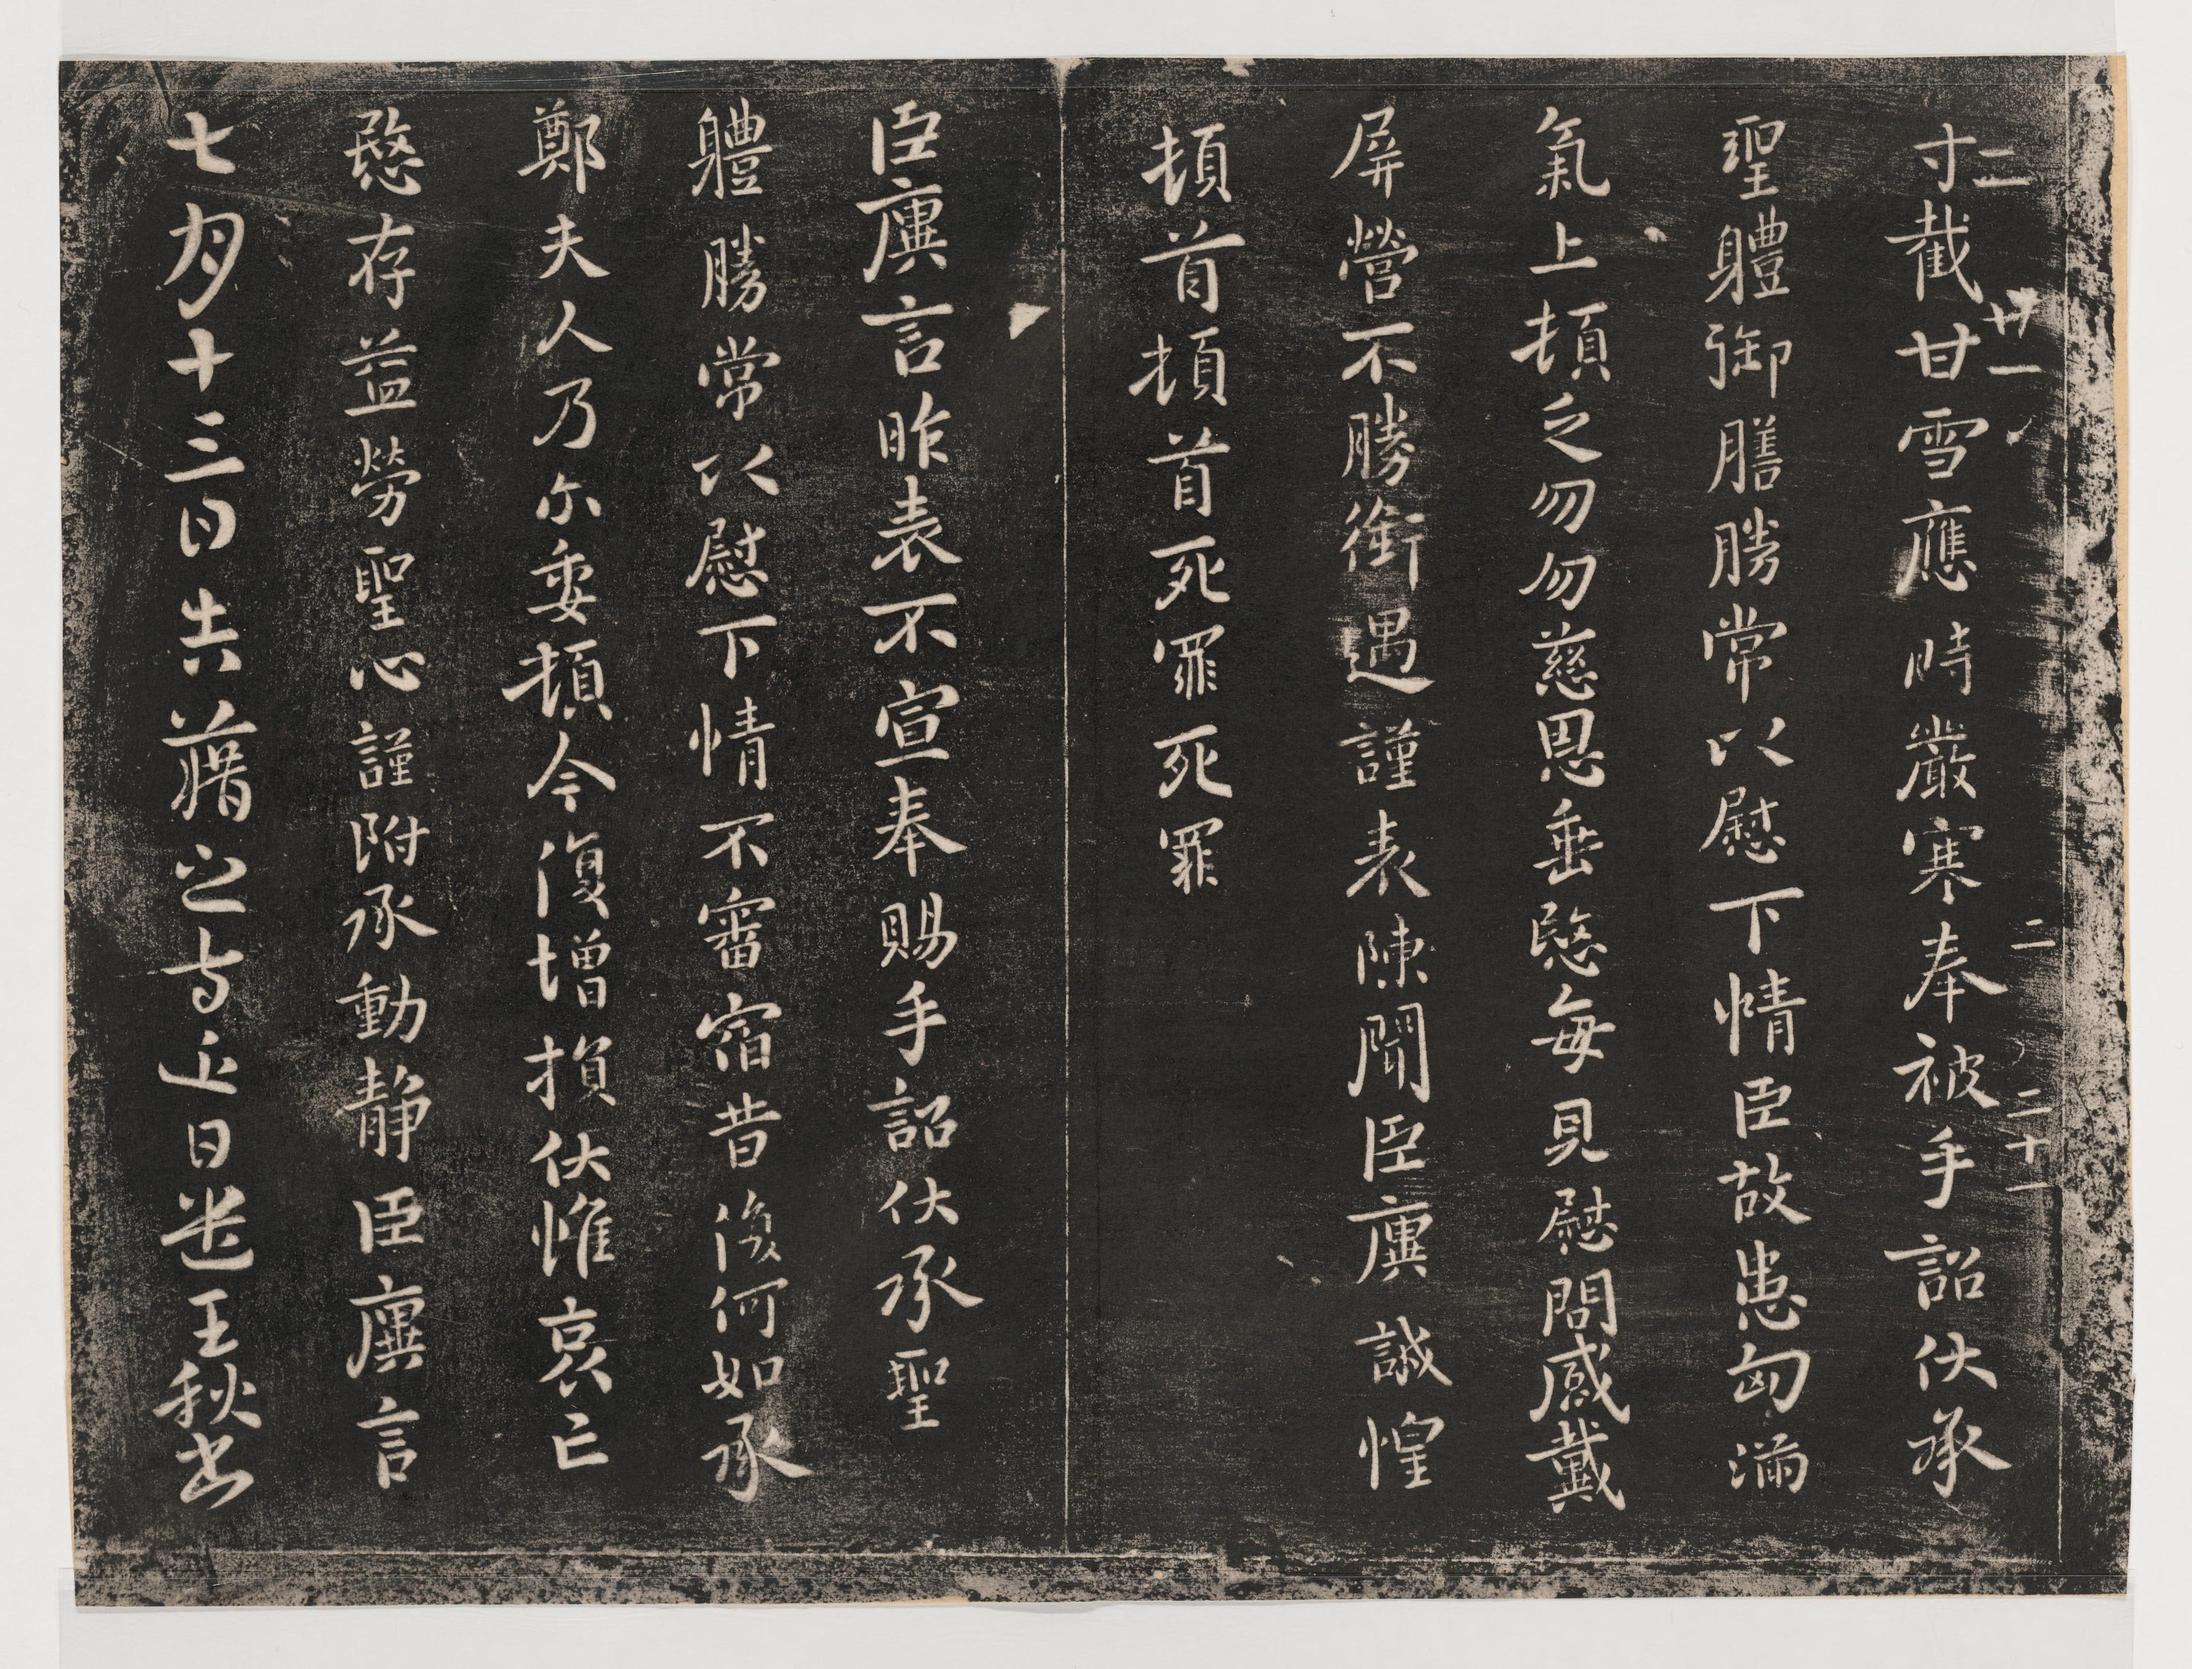 二 廿一 二 二十一
寸截甘雪應時嚴寒奉被手詔伏承
聖軆御膳勝常以慰下情臣故患匈滿
氣上頓乏勿勿慈恩垂愍每見慰問感戴
屏營不勝銜遇謹表陳聞臣廙誠惶
頓首頓首死罪死罪
臣廙言昨表不宣奉賜手詔伏承聖
軆勝常以慰下情不審宿昔復何如承
鄭夫人乃尒委頓今復增損伏惟哀亡
愍存益勞聖心謹附承動靜臣廙言
七月十三日告藉之等近日遣王秋書